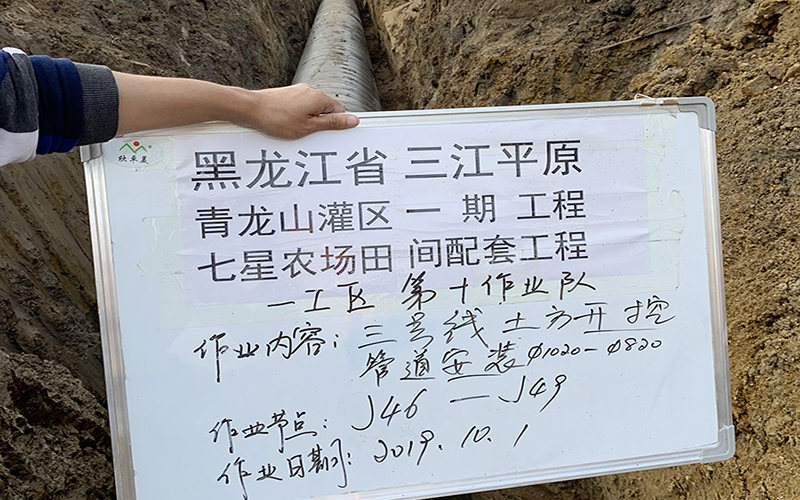 欣卓晨
黑龙江省 三江平原
青龙山灌区 一 期 工程
七星农场田 间配套工程
一工区 第十作业队
作业内容：三号线土方开挖
管道安装 Φ1020－Φ820
作业节点：J46 — J49
作业日期：2019.10.1